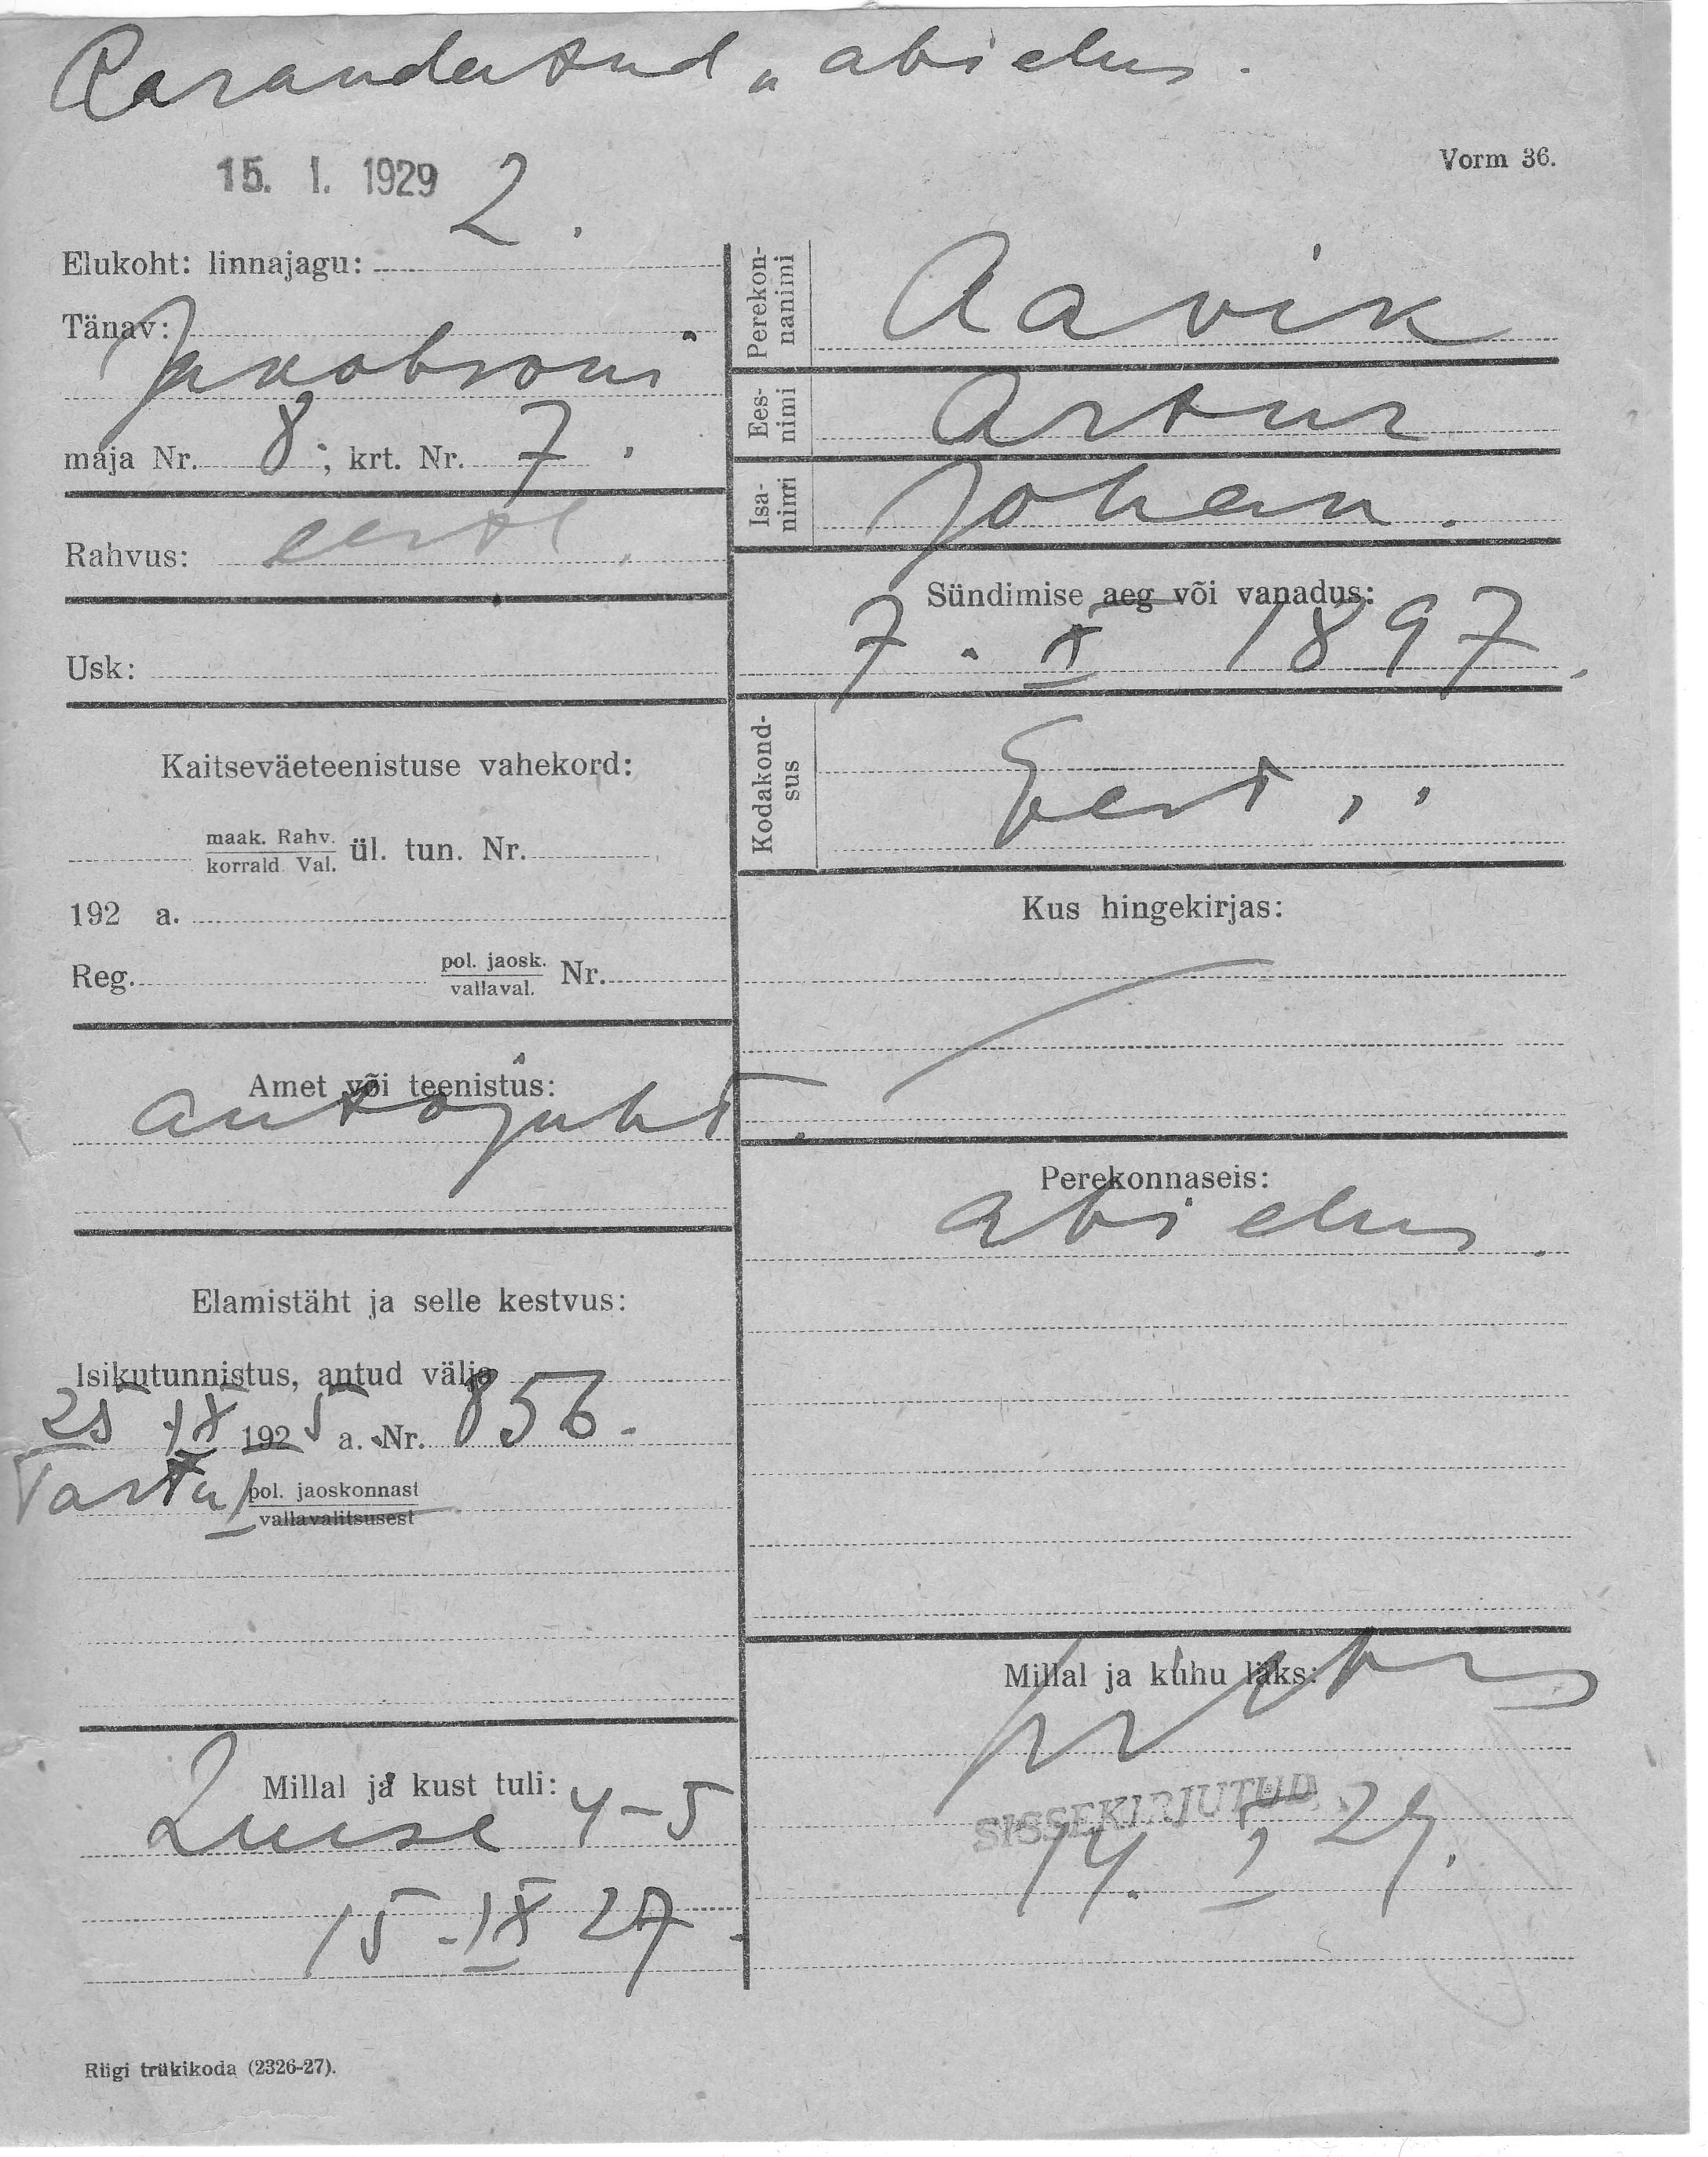 Parandatud „abielus.
15. I. 1929
2.
Vorm 36.
Elukoht: linnajagu:
Tänav:
Jakobsoni
maja Nr. 8; krt. Nr. 7.
Rahvus: eestl.
Usk:
Kaitseväeteenistuse vahekord:
maak. Rahv.
korrald. Val. ül. tun. Nr.
192 a.
Reg. pol. jaosk.
vallaval. Nr.
Amet või teenistus:
autojuht.
Elamistäht ja selle kestvus:
Isikutunnistus, antud välja
25 IX 1925 a. Nr. 856.
Tartu I pol. jaoskonnast
vallavalitsusest
Millal ja kust tuli:
Luise 4-5
15 IX 27.
Riigi trükikoda (2326-27).
Perekonnanimi
Aavik
Eesnimi
Artur
Isanimi
Johan.
Sündimise aeg või vanadus:
7. X 1897.
Kodakondsus
Eest.
Kus hingekirjas:
Perekonnaseis:
abielus.
Millal ja kuhu läks:
SISSEKIRJUTUD
14. I 29.